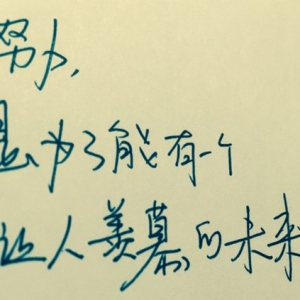 努力，
是为了能有一个
让人羡慕的未来